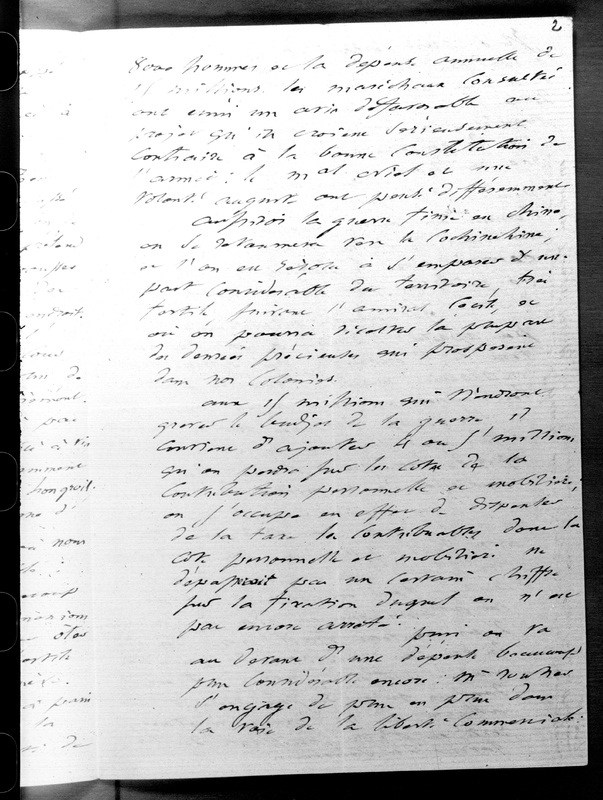 2
8000 hommes et la dépense annuelle de
15 millions. les maréchaux consultés
ont émis un avis défavorable au
projet qu'ils croient sérieusement
contraire à la bonne constitution de
l'armée : le mal et une
volonté auguste ont pensé différemment
aussitôt la guerre finie en chine,
on se retournera vers la Cochinchine,
et l'on est résolu à s'emparer d'une
part considérable du territoire, très
fertile suivant l'amiral et
où on pourra récolter la plupart
des denrées précieuses qui prospèrent
dans nos colonies.
aux 15 millions qui viendront
grever le budget de la guerre il
convient d'ajouter 4 ou 5 millions
qu'on perdra sur les cotes de la
Contribution personnelle et mobilière;
on s'occupe en effet de dispenser
de la taxe les contribuables dont la
cote personnelle et mobilière ne
dépasserait pas un certain chiffre
sur la fixation duquel on n'est
pas encore arrêté.
puis on va
au devant d'une dépense beaucoup
plus considérable encore : Mr rouher
s'engage de plus en plus dans
la voie de la liberté Commerciale.